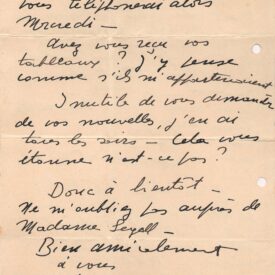 vous téléphonerai alors
Mercredi —
Avez vous reçu vos
tableaux ? J'y pense
comme s'ils m'appartenaient
Inutile de vous demander
de vos nouvelles, j'en ai
tous les soirs — Cela vous
étonne n'est-ce pas ?
Donc à bientôt —
Ne m'oubliez pas auprès de
Madame Segall —
Bien amicalement
à vous